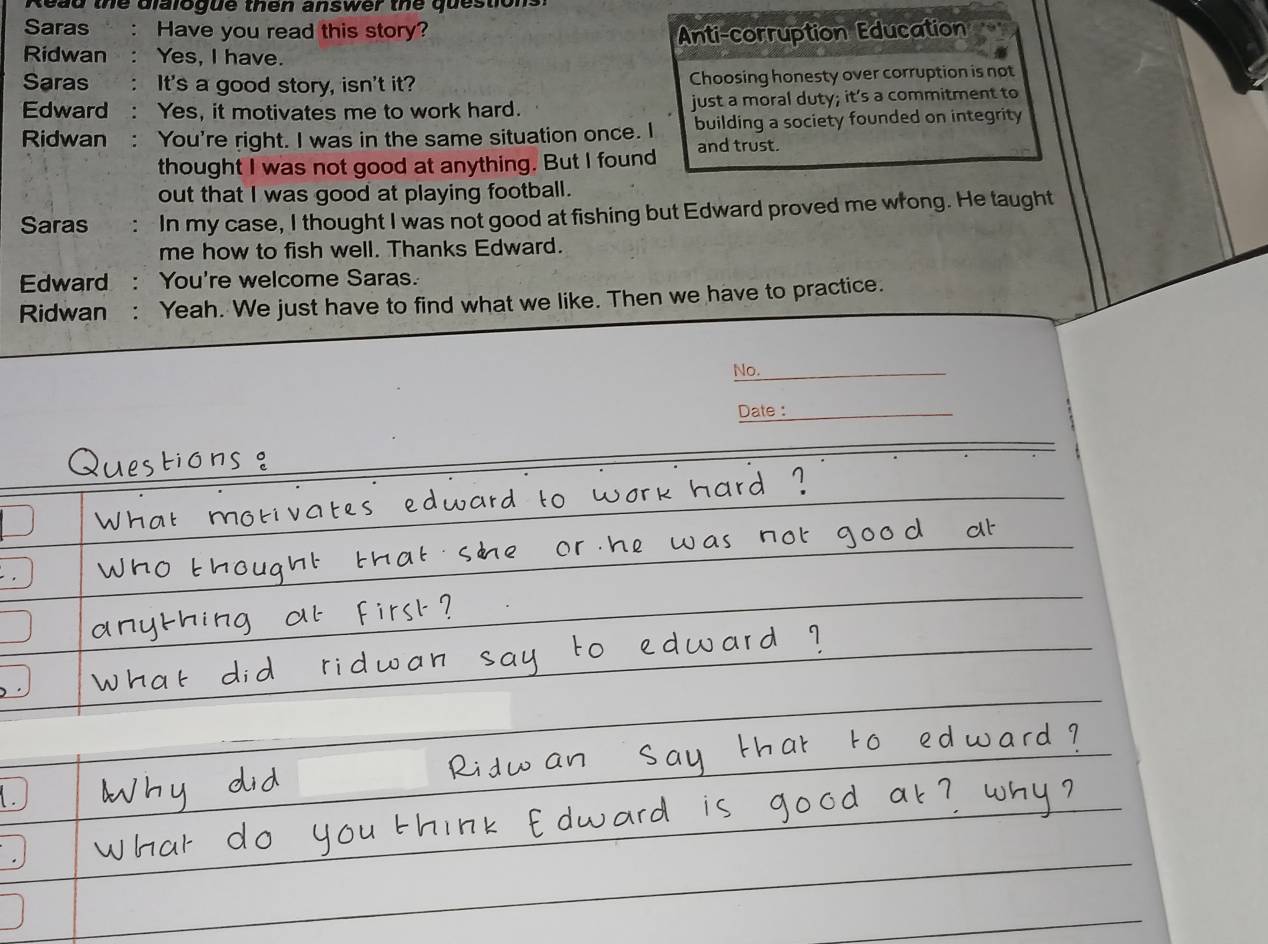 Read the dialogue then answer the questions!
Saras : Have you read this story?
Ridwan : Yes, I have.
Saras : It's a good story, isn't it?
Edward : Yes, it motivates me to work hard.
Ridwan : You're right. I was in the same situation once. I
thought I was not good at anything. But I found
out that I was good at playing football.
Saras : In my case, I thought I was not good at fishing but Edward proved me wrong. He taught
me how to fish well. Thanks Edward.
Edward : You're welcome Saras.
Ridwan : Yeah. We just have to find what we like. Then we have to practice.
Anti-corruption Education
Choosing honesty over corruption is not
just a moral duty; it's a commitment to
building a society founded on integrity
and trust.
No.
Date :
Questions :
What motivates edward to work hard ?
Who thought that she or he was not good at
anything at first ?
What did ridwan say to edward ?
Why did Ridwan say that to edward ?
What do you think Edward is good at ? why ?